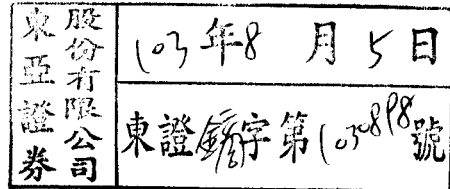 東亞證券
股份有限公司
103年8月5日
東證字第1030898號